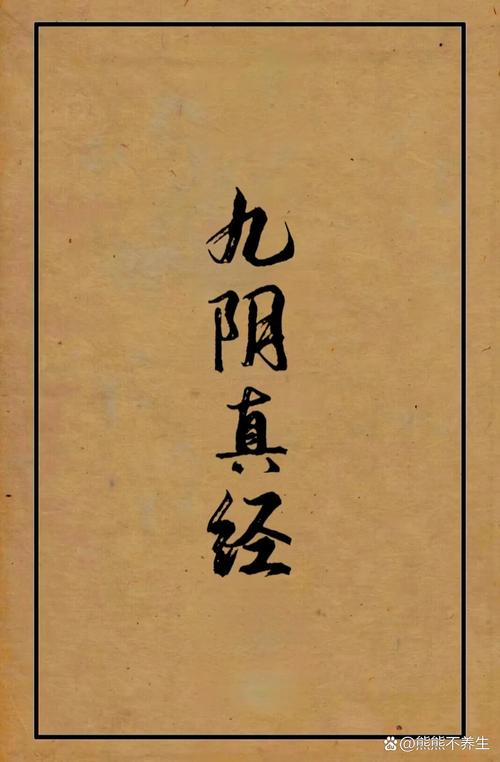 九阴真经
@熊熊不养生